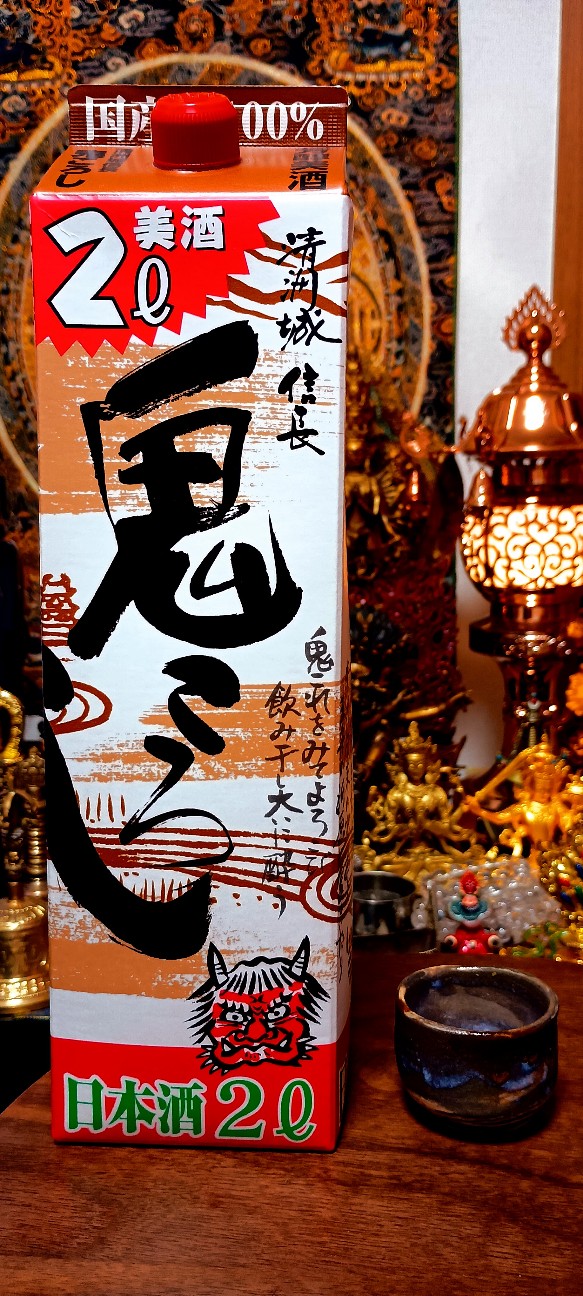 国産 00%
美酒
2ℓ
清洲城 信長
鬼ころし
鬼これをみてよろ
飲み干し大いに酔う
日本酒2ℓ